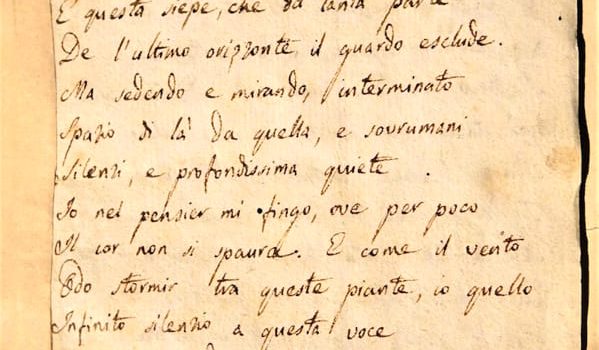 E questa siepe, che da tanta parte
De l'ultimo orizzonte il guardo esclude.
Ma sedendo e mirando, interminato
Spazio di là da quella, e sovrumani
Silenzi, e profondissima quiete.
Io nel pensier mi fingo, ove per poco
Il cor non si spaura. E come il vento
Odo stormir tra queste piante, io quello
Infinito silenzio a questa voce